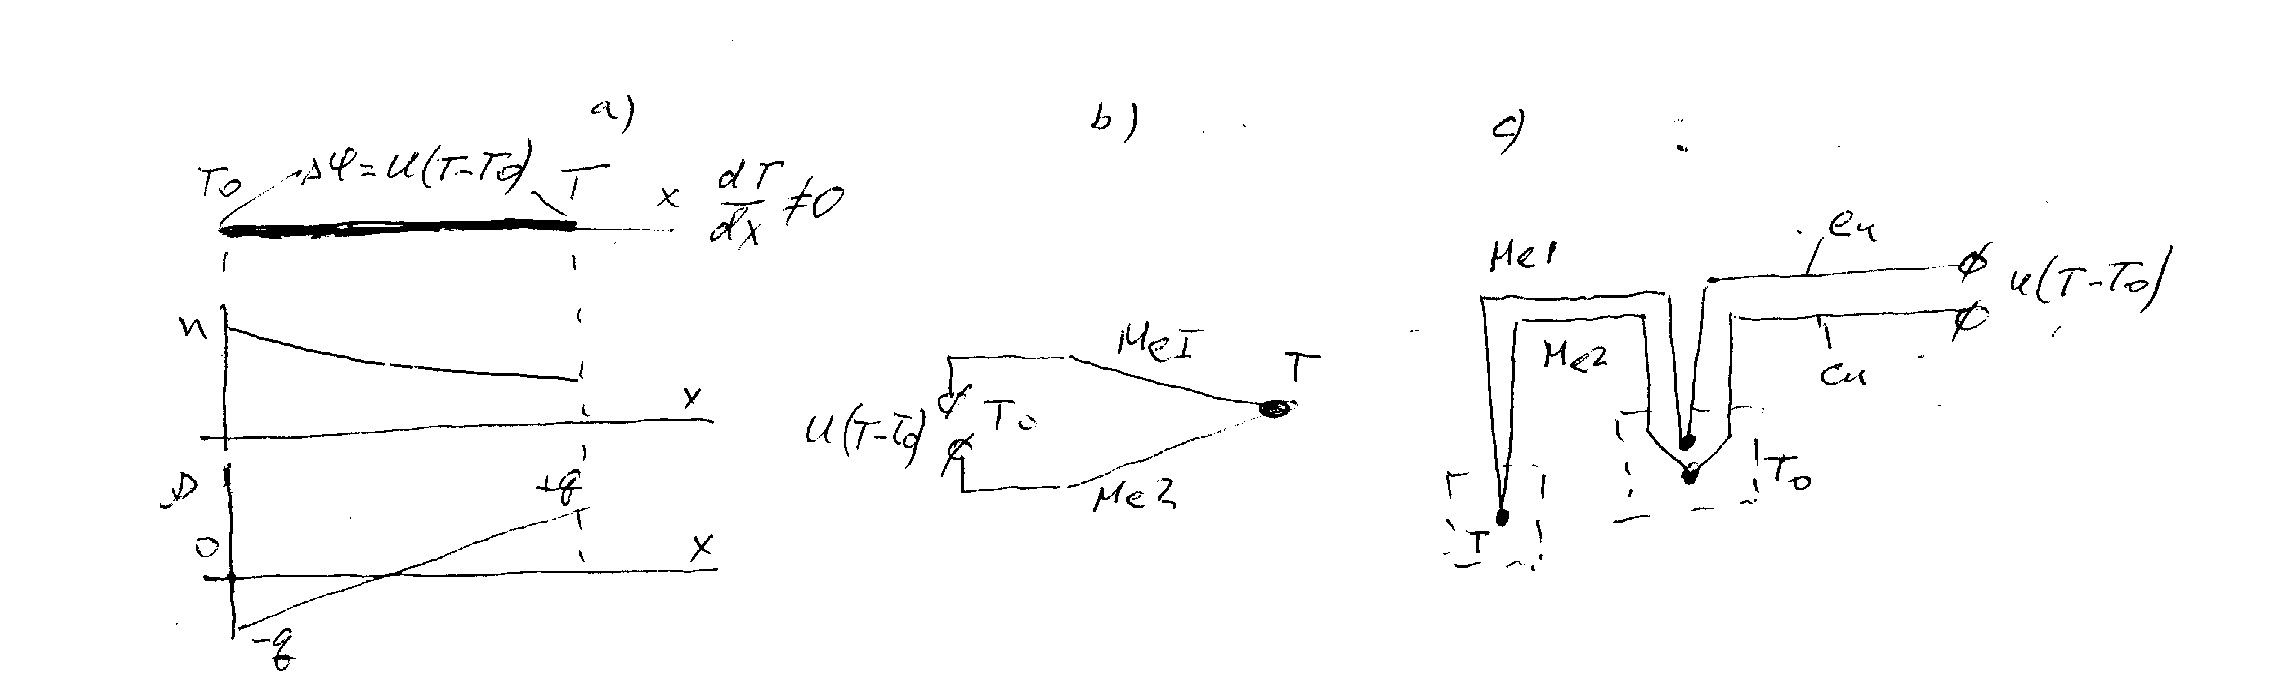 a)
b)
c)
T₀
Δφ=U(T-T₀)
T
x
dT/dx ≠0
n
x
0
+q
x
-q
MeI
T
U(T-T₀)
T₀
Me2
Me1
Cu
U(T-T₀)
Me2
Cu
T₀
T